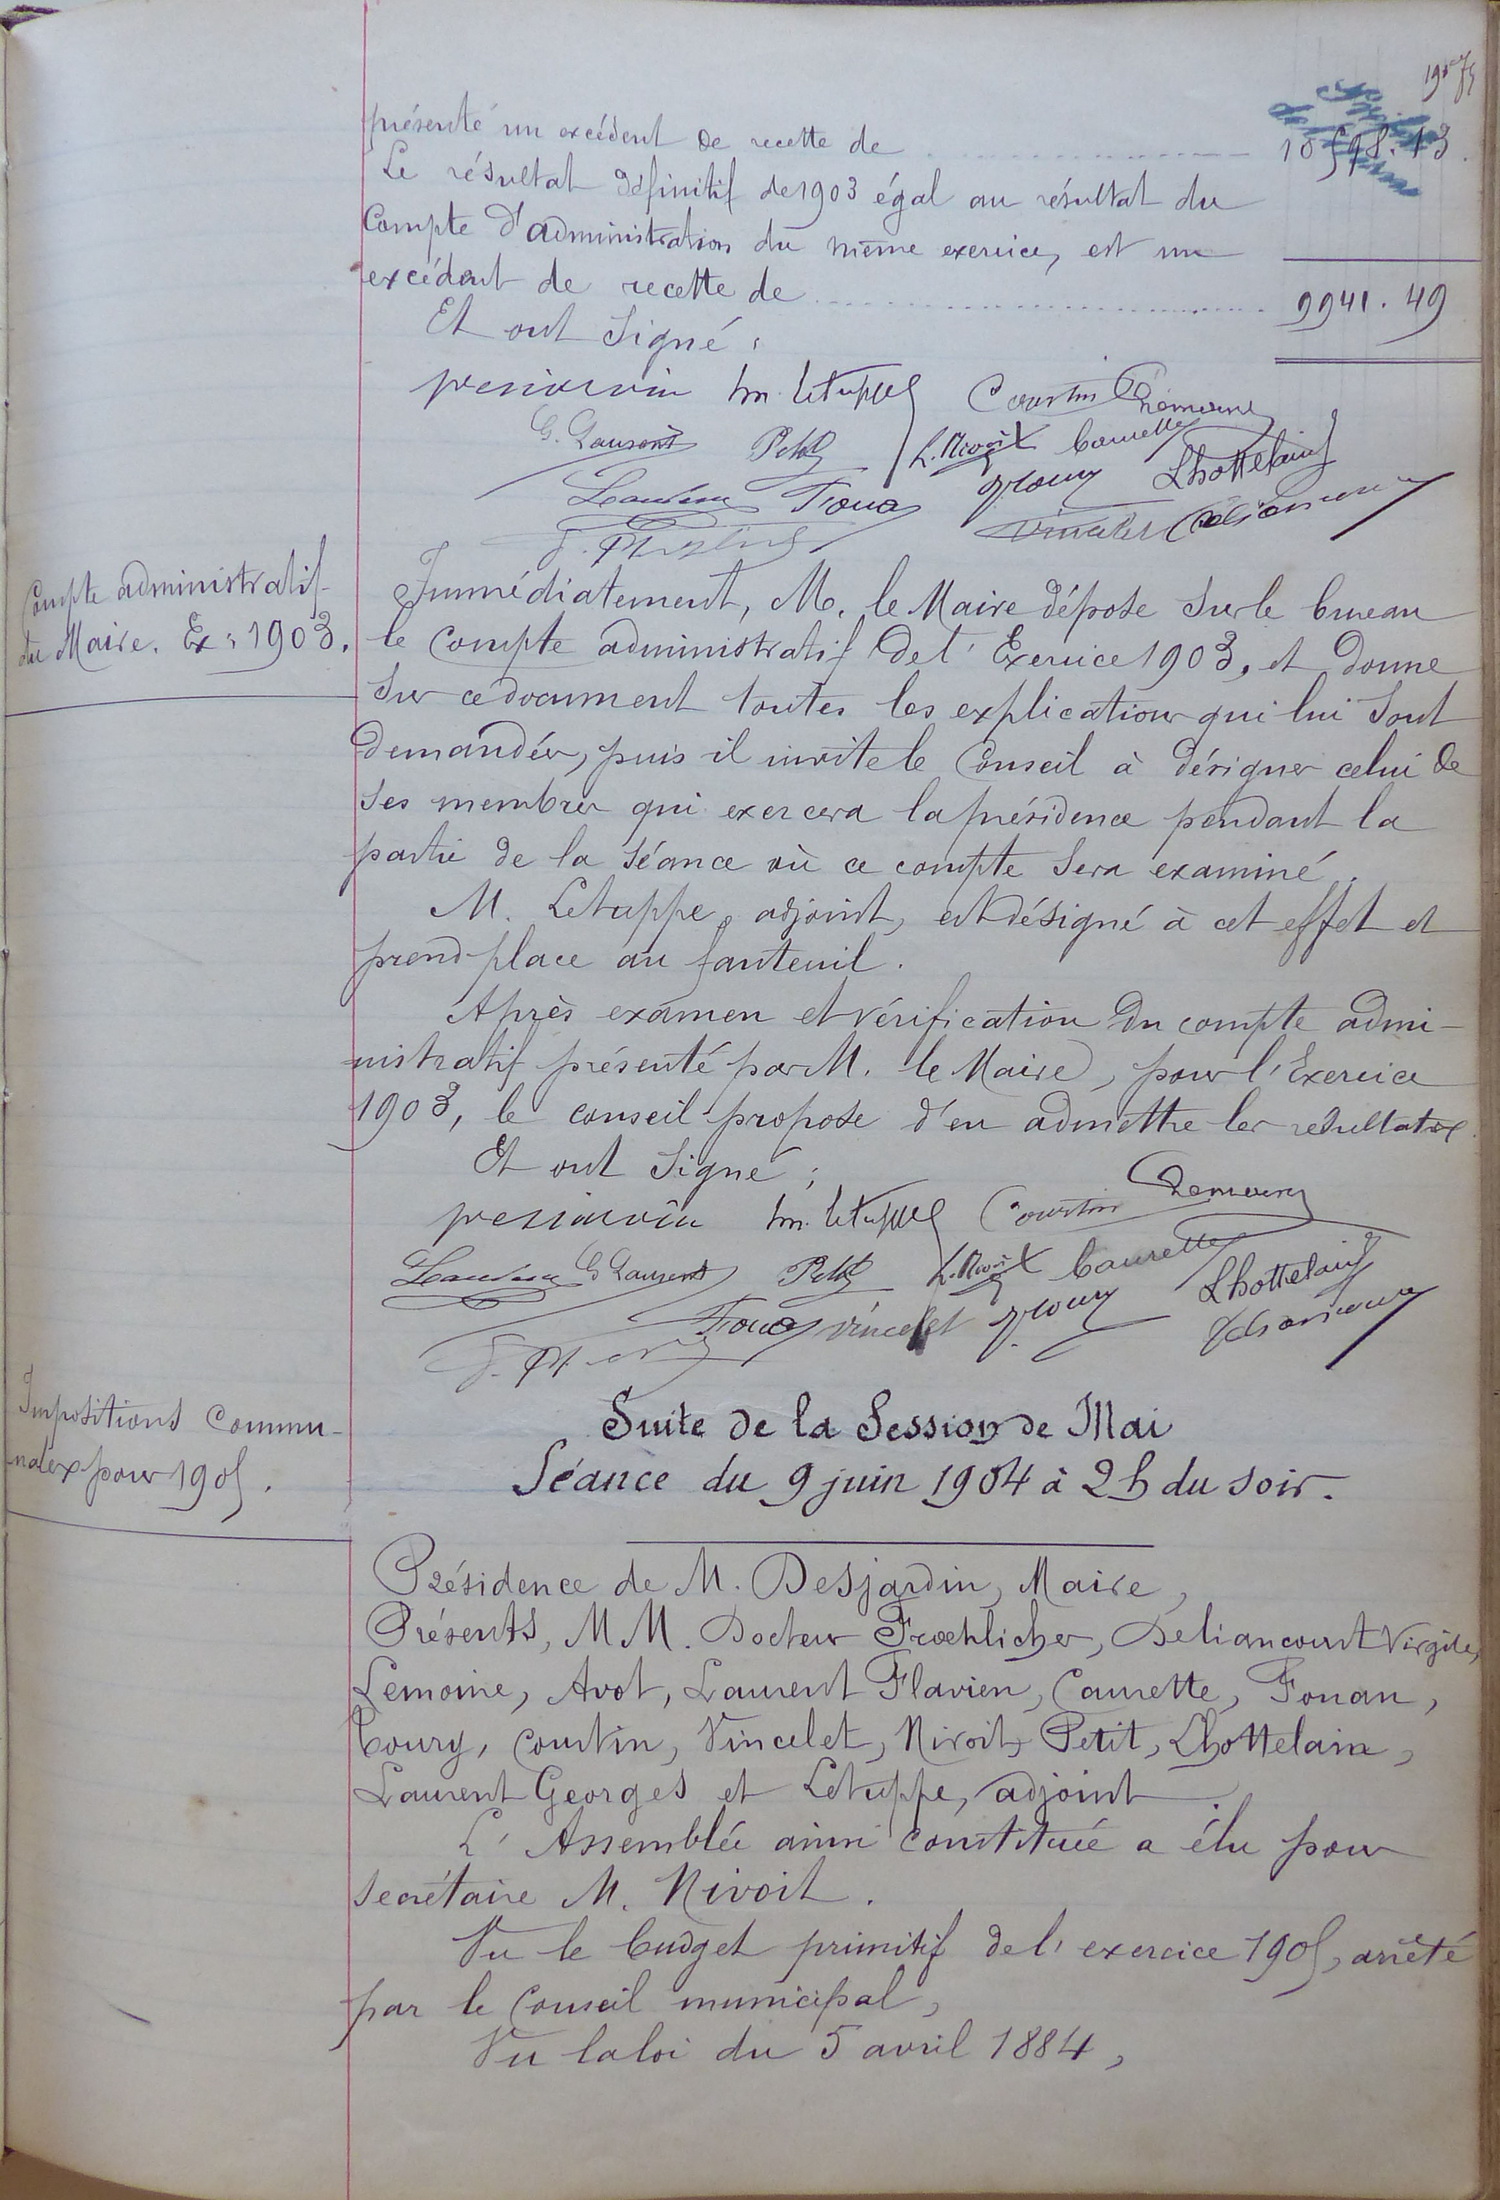 présenté un excédent de recette de 10598.13
Le résultat définitif de 1903 égal au résultat du
Compte d'administration du même exercice, est un
excédent de recette de 9941.49
Et ont signé :
M. Letuppe Courtin Lemoine
G. Laurent Petit L. Nivoit Caurette
Fouan Thoury Lhottelain
Vincelet Deliancourt
Compte administratif
du Maire. Ex : 1903.
Immédiatement, M. le Maire dépose sur le bureau
le Compte administratif de l'Exercice 1903, et donne
sur ce document toutes les explications qui lui sont
demandées, puis il invite le Conseil à désigner celui de
ses membres qui exercera la présidence pendant la
partie de la séance où ce compte sera examiné.
M. Letuppe, adjoint, est désigné à cet effet et
prend place au fauteuil.
Après examen et vérification du compte admi-
nistratif présenté par M. le Maire, pour l'Exercice
1903, le conseil propose d'en admettre les resultats
Et ont signé ;
M. Letuppe Courtin Lemoine
G Laurent Petit L. Nivoit Caurette Lhottelain
Fouan Vincelet Deliancourt
Impositions Commu-
nales pour 1905.
Suite de la Session de Mai
Séance du 9 juin 1904 à 2 h du soir.
Présidence de M. Desjardin, Maire,
Présents, MM. Docteur Froehlicher, Deliancourt Virgile,
Lemoine, Avot, Laurent Flavien, Caurette, Fouan,
Coury, Courtin, Vincelet, Nivoit, Petit, Lhottelain,
Laurent Georges et Letuppe, adjoint.
L'Assemblée ainsi constituée a élu pour
secrétaire M. Nivoit.
Vu le budget primitif de l'exercice 1905, arrêté
par le Conseil municipal,
Vu la loi du 5 avril 1884,